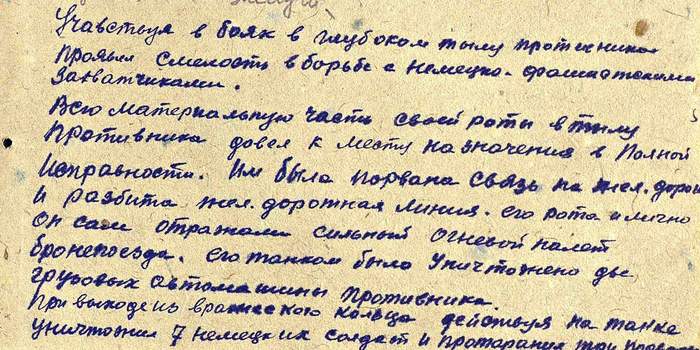 Участвуя в боях в глубоком тылу противника
проявил смелость в борьбе с немецко-фашистскими
захватчиками.
Всю материальную часть своей роты в тылу
противника довел к месту назначения в полной
исправности. Им была порвана связь на жел. дороге
и разбита жел. дорожная линия. Его рота и лично
он сам отражали сильный огневой налет
бронепоезда. Его танком было уничтожено две
грузовых автомашины противника.
При выходе из вражеского кольца действуя на танке
уничтожил 7 немецких солдат и протаранил три